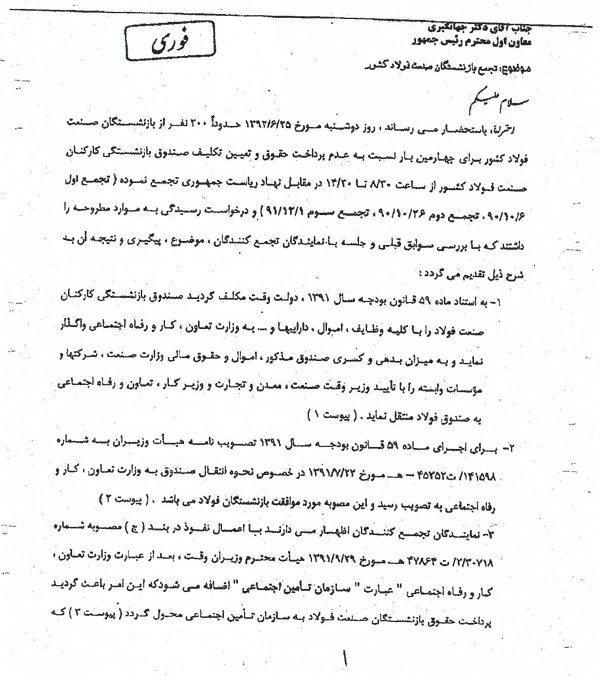 جناب آقای دکتر جهانگیری
معاون اول محترم رئیس جمهور
فوری
موضوع: تجمع بازنشستگان صنعت فولاد کشور
سلام علیکم
احتراماً، باستحضار می رساند ، روز دوشنبه مورخ ۱۳۹۲/۶/۲۵ حدوداً ۲۰۰ نفر از بازنشستگان صنعت
فولاد کشور برای چهارمین بار نسبت به عدم پرداخت حقوق و تعیین تکلیف صندوق بازنشستگی کارکنان
صنعت فولاد کشور از ساعت ۸/۳۰ تا ۱۴/۳۰ در مقابل نهاد ریاست جمهوری تجمع نموده ( تجمع اول
۹۰/۱۰/۶ ، تجمع دوم ۹۰/۱۰/۲۶ ، تجمع سوم ۹۱/۱۲/۱ ) و درخواست رسیدگی به موارد مطروحه را
داشتند که با بررسی سوابق قبلی و جلسه با نمایندگان تجمع کنندگان ، موضوع ، پیگیری و نتیجه آن به
شرح ذیل تقدیم می گردد :
۱- به استناد ماده ۵۹ قانون بودجه سال ۱۳۹۱ ، دولت وقت مکلف گردید صندوق بازنشستگی کارکنان
صنعت فولاد را با کلیه وظایف ، اموال ، داراییها و ... به وزارت تعاون ، کار و رفاه اجتماعی واگذار
نماید و به میزان بدهی و کسری صندوق مذکور ، اموال و حقوق مالی وزارت صنعت ، شرکتها و
مؤسسات وابسته را با تأیید وزیر وقت صنعت ، معدن و تجارت و وزیر کار ، تعاون و رفاه اجتماعی
به صندوق فولاد منتقل نماید . ( پیوست ۱ )
۲- برای اجرای ماده ۵۹ قانون بودجه سال ۱۳۹۱ تصویب نامه هیأت وزیران به شماره
۱۴۱۵۹۸/ت۴۵۳۵۲ – هـ مورخ ۱۳۹۱/۷/۲۲ در خصوص نحوه انتقال صندوق به وزارت تعاون ، کار و
رفاه اجتماعی به تصویب رسید و این مصوبه مورد موافقت بازنشستگان فولاد می باشد . ( پیوست ۲ )
۳- نمایندگان تجمع کنندگان اظهار می دارند با اعمال نفوذ در بند ( ج ) مصوبه شماره
۲/۳۰۷۱۸/ ت ۴۷۸۶۴ هـ مورخ ۱۳۹۱/۹/۲۹ هیأت محترم وزیران وقت ، بعد از عبارت وزارت تعاون ،
کار و رفاه اجتماعی " عبارت " سازمان تأمین اجتماعی " اضافه می شود که این امر باعث گردید
پرداخت حقوق بازنشستگان صنعت فولاد به سازمان تأمین اجتماعی محول گردد ( پیوست ۳ ) که
۱